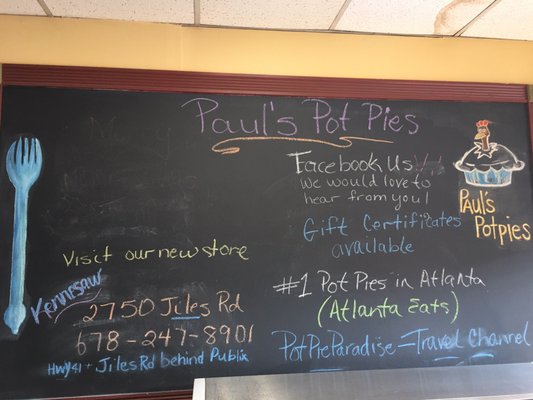 Paul's Pot Pies
Facebook Us!!
We would love to
hear from you!
Gift Certificates
available
Paul's
Potpies
Visit our new store
Kennesaw
2750 Jiles Rd
678-247-8901
Hwy 41 + Jiles Rd behind Publix
#1 Pot Pies in Atlanta
(Atlanta Eats)
Pot Pie Paradise = Travel Channel